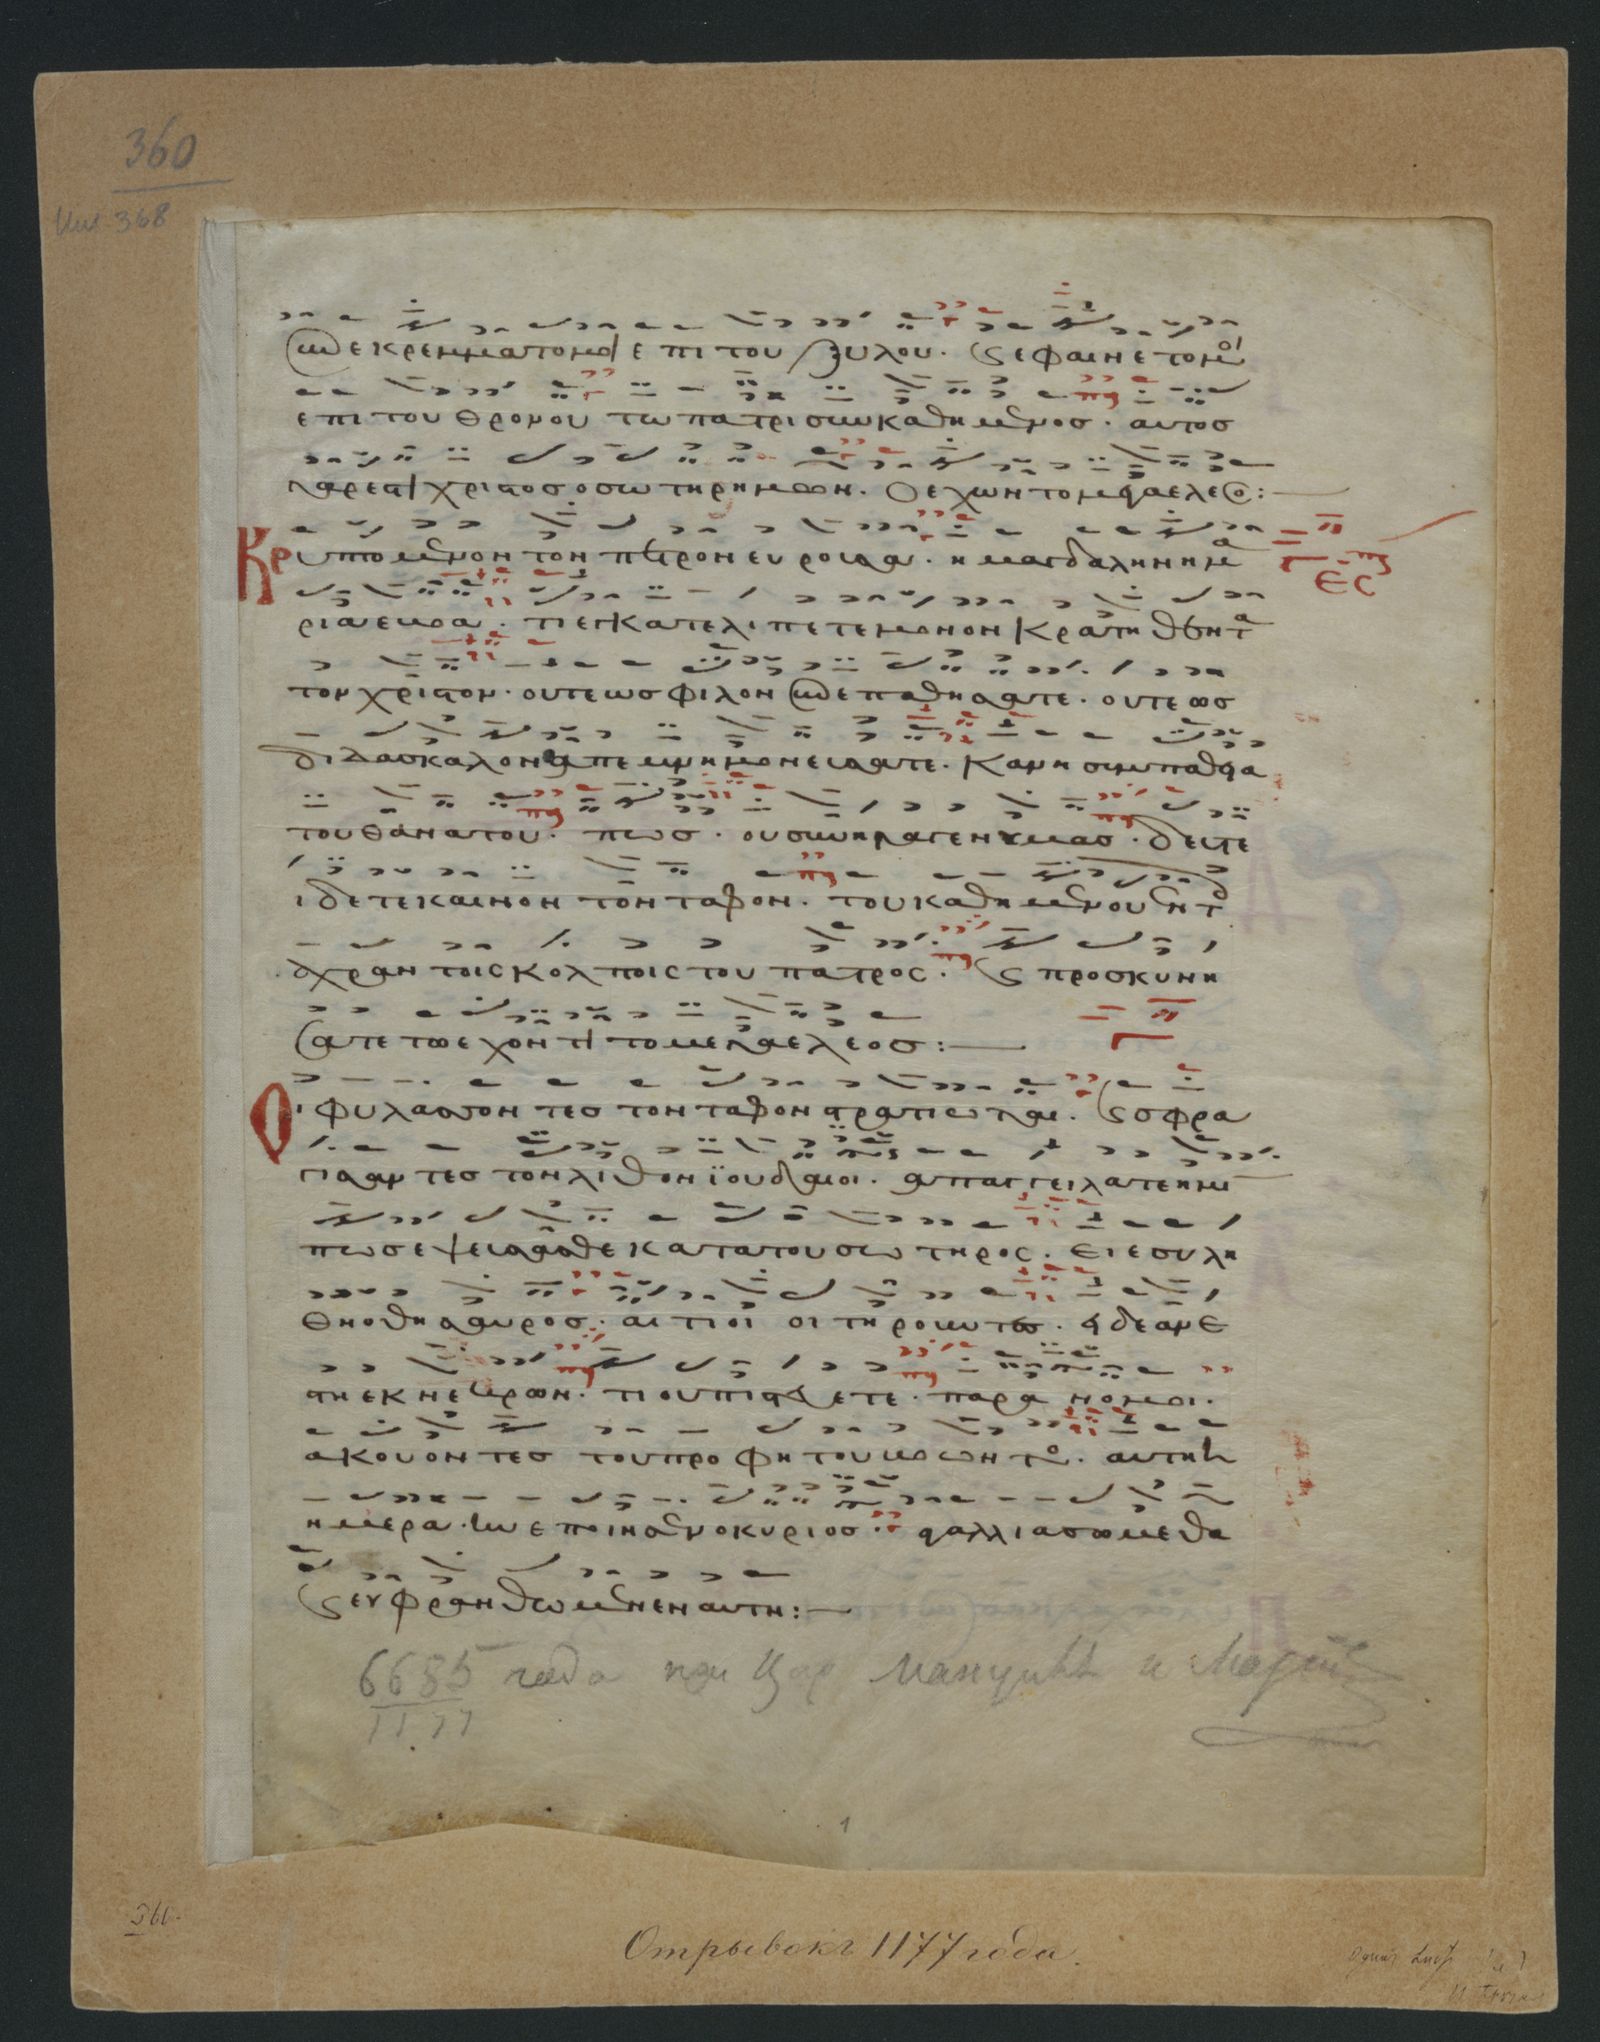 360
368
ως εκρεμματο μεν επι του ξυλου. ϛ εφαινετο μοι
επι του θρονου τω πατρι συν καθημενος. αυτος
γαρ εστι χριστος ο σωτηρ ημων. ο εχων το μεγα ελεος:
Κρυπτομενον τον πετρον ευρουσα. η μαγδαλινη μα
ρια εβοα. τι εγκατελιπετε μονον κρατηθεντα
τον χριστον. ουτε ως φιλον ως επαθησατε. ουτε ως
διδασκαλον απεμνημονευσατε. καν η συμπαθεια
του θανατου. πως. ου συνηγαγεν υμας. δευτε
ιδετε καινον τον ταφον. του καθημενου
αχραν τοις κολποις του πατρος. ϛ προσκυνη
σατε τω εχοντι το μεγα ελεος:
Οι φυλασσοντες τον ταφον στρατιωται. ϛ σφρα
γισαντες τον λιθον ϊουδαιοι. απαγγειλατε ημι
πως εψευσασθε κατα του σωτηρος. ει εσυλη
θη ο θησαυρος. αιτιοι οι τηρουντες. ει δε ανε
στη εκ νεκρων. τι ου πιστευετε. παρανομοι.
ακουοντες του προφητου βοωντος. αυτη η
ημερα. ην εποιησεν ο κυριος. αγαλλιασωμεθα
ϛ ευφρανθωμεν εν αυτη:
6685 года при Цар Мануилѣ и Марии
1177
1
360
Отрывокъ 1177 года.
Одинъ листъ